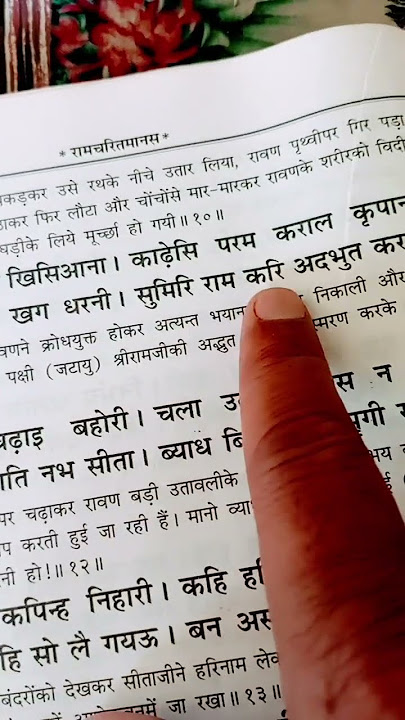 * रामचरितमानस *
पकड़कर उसे रथके नीचे उतार लिया, रावण पृथ्वीपर गिर पड़ा
फिर लौटा और चोंचोंसे मार-मारकर रावणके शरीरको विदी
घड़ीके लिये मूर्च्छा हो गयी॥ १०॥
खिसिआना। काढ़ेसि परम कराल कृपान
खग धरनी। सुमिरि राम करि अदभुत कर
क्रोधयुक्त होकर अत्यन्त निकाली और
पक्षी (जटायु) श्रीरामजीकी अद्भुत करके
बहोरी। चला न
नभ सीता। ब्याध
पर चढ़ाकर रावण बड़ी उतावलीके
करती हुई जा रही हैं। मानो
हो!॥ १२॥
कपिन्ह निहारी। कहि
सो लै गयऊ। बन
बंदरोंको देखकर सीताजीने हरिनाम
जा रखा॥ १३॥